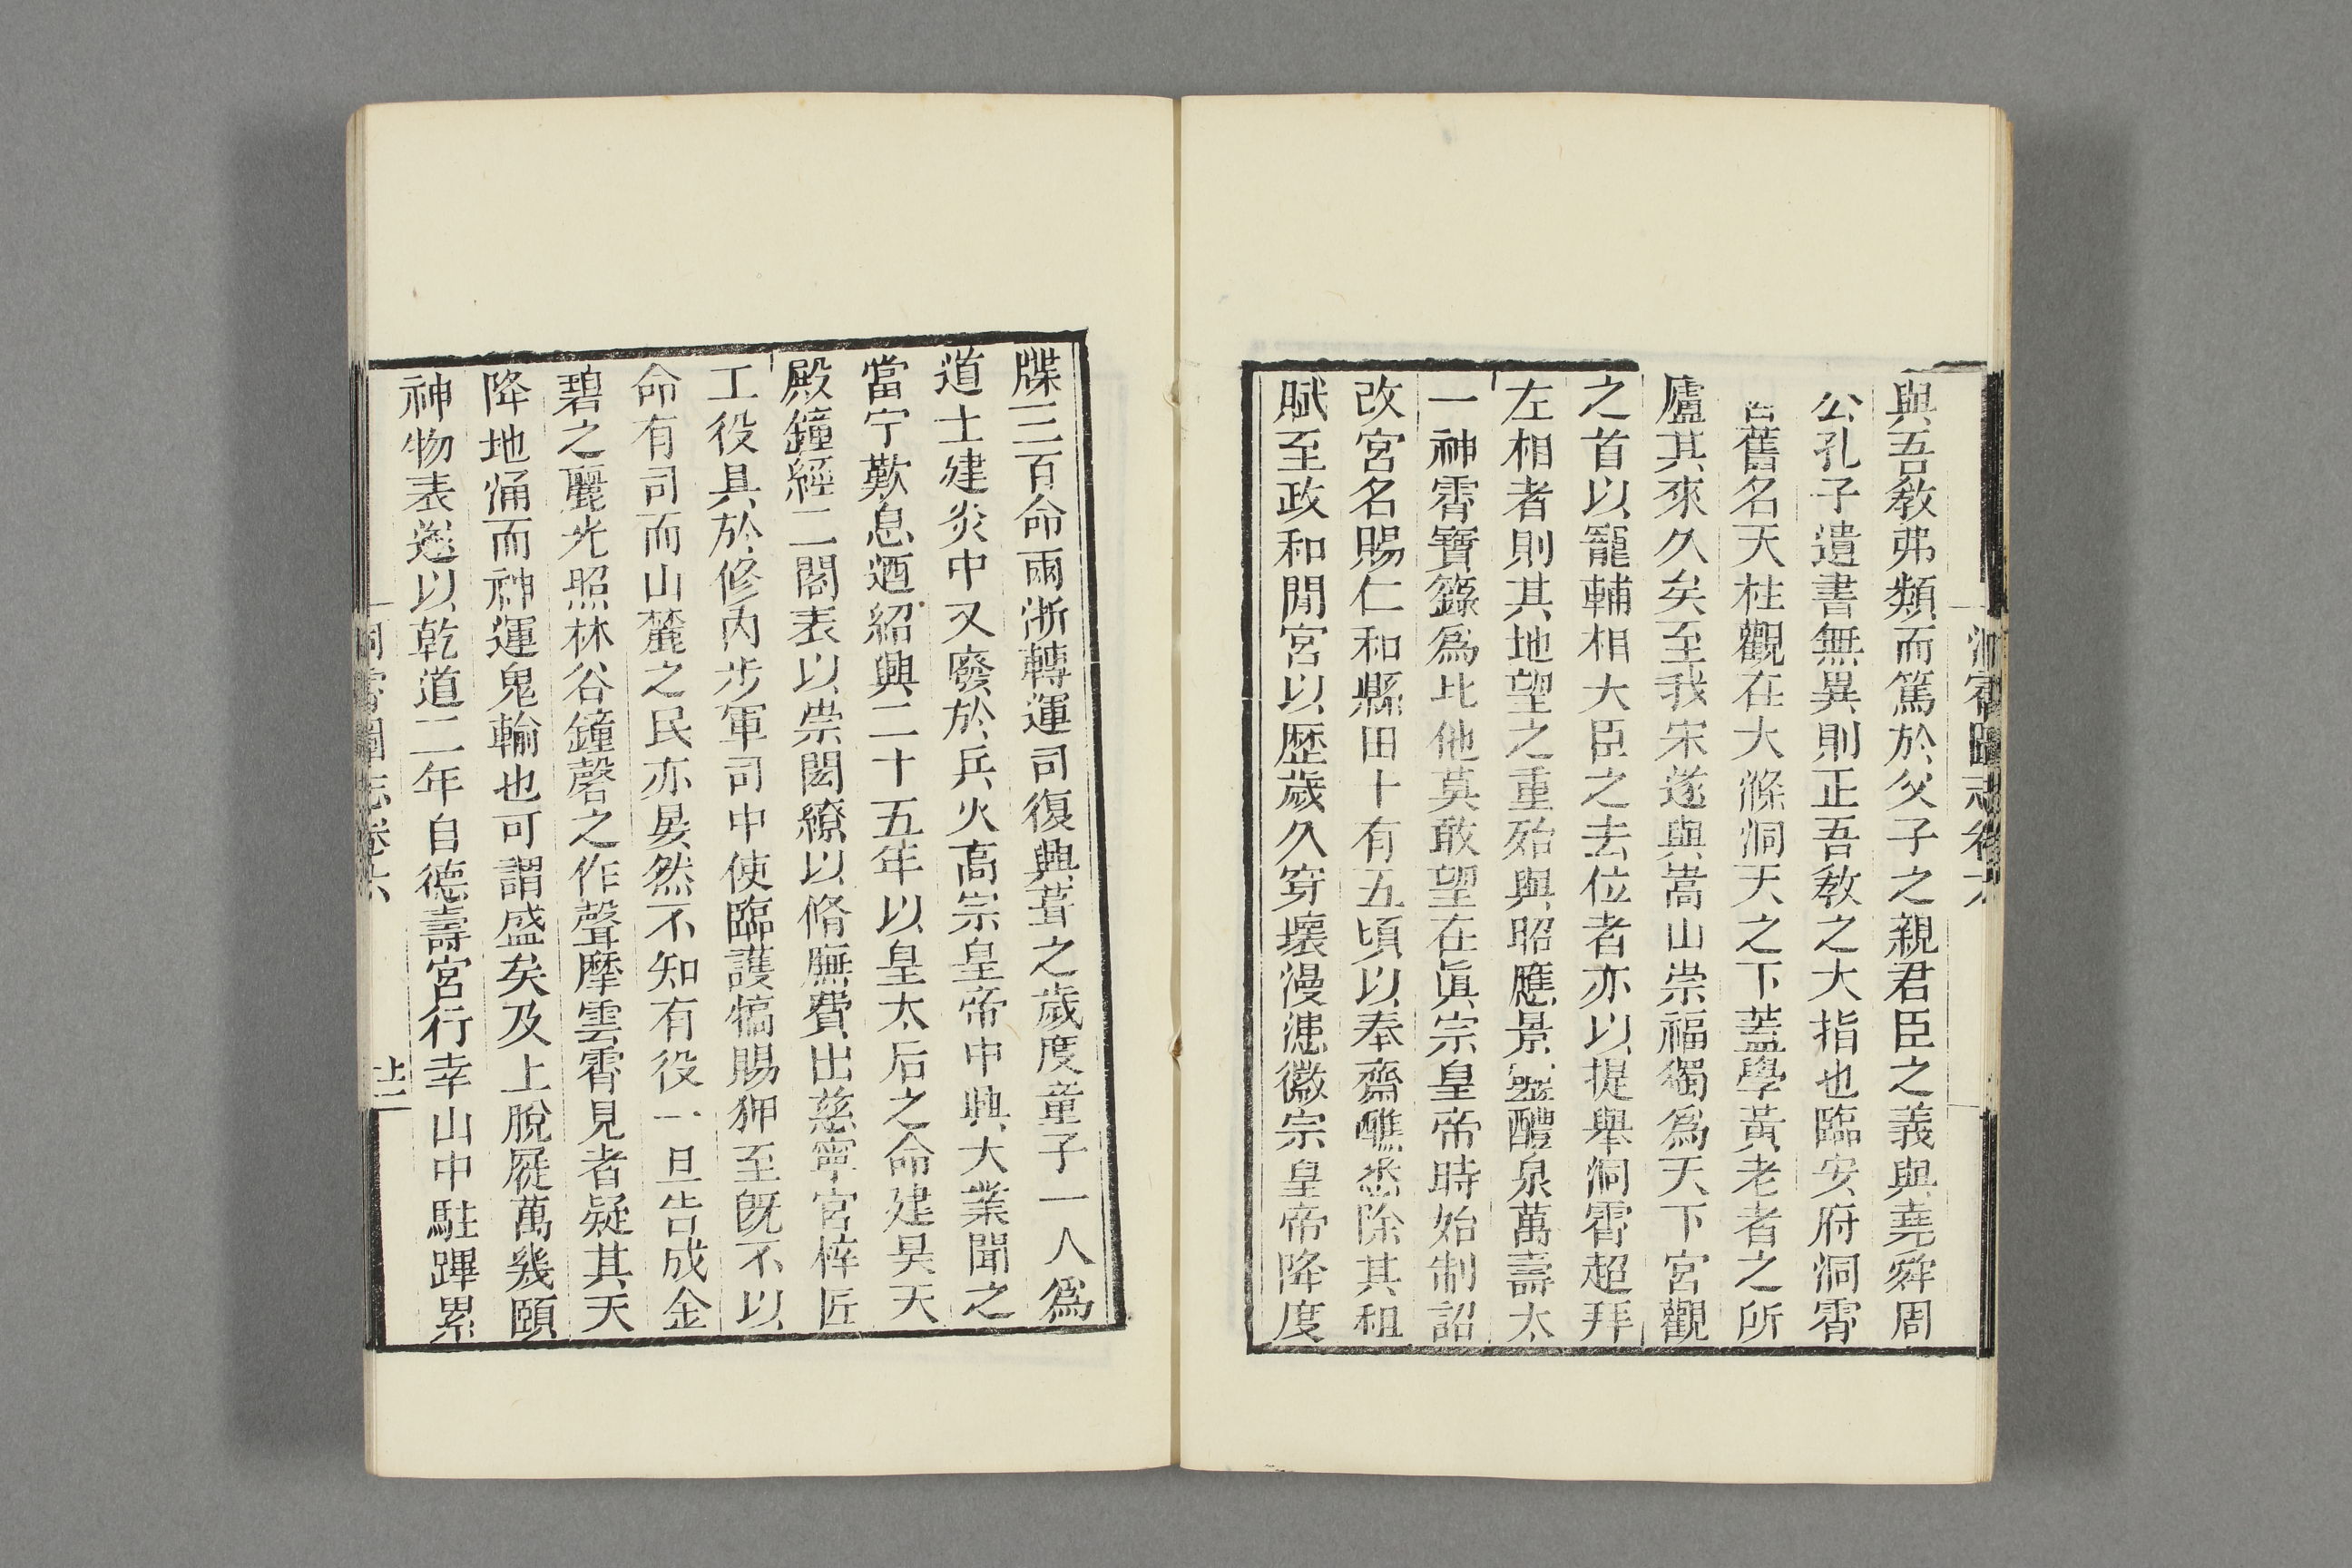 與吾敎弗類而篤於父子之親君臣之義與堯舜周
公孔子遺書無異則正吾敎之大指也臨安府洞霄
宮舊名天柱觀在大滌洞天之下蓋學黃老者之所
廬其來久矣至我宋遂與嵩山崇福獨爲天下宮觀
之首以寵輔相大臣之去位者亦以提舉洞霄超拜
左相者則其地望之重殆與昭應景靈醴泉萬壽太
一神霄寶籙爲比他莫敢望在眞宗皇帝時始制詔
改宮名賜仁和縣田十有五頃以奉齋醮悉除其租
賦至政和閒宮以歷歲久穿壞漫漶徽宗皇帝降度
牒三百命兩浙轉運司復興葺之歲度童子一人爲
道士建炎中又廢於兵火高宗皇帝中興大業聞之
當宁歎息廼紹興二十五年以皇太后之命建昊天
殿鐘經二閣表以崇閎繚以脩廡費出慈寧宮梓匠
工役具於修內步軍司中使臨護犒賜狎至旣不以
命有司而山麓之民亦晏然不知有役一旦告成金
碧之麗光照林谷鐘磬之作聲摩雲霄見者疑其天
降地涌而神運鬼輸也可謂盛矣及上脫屣萬幾頤
神物表遂以乾道二年自德壽宮行幸山中駐蹕累
洞霄圖志卷六